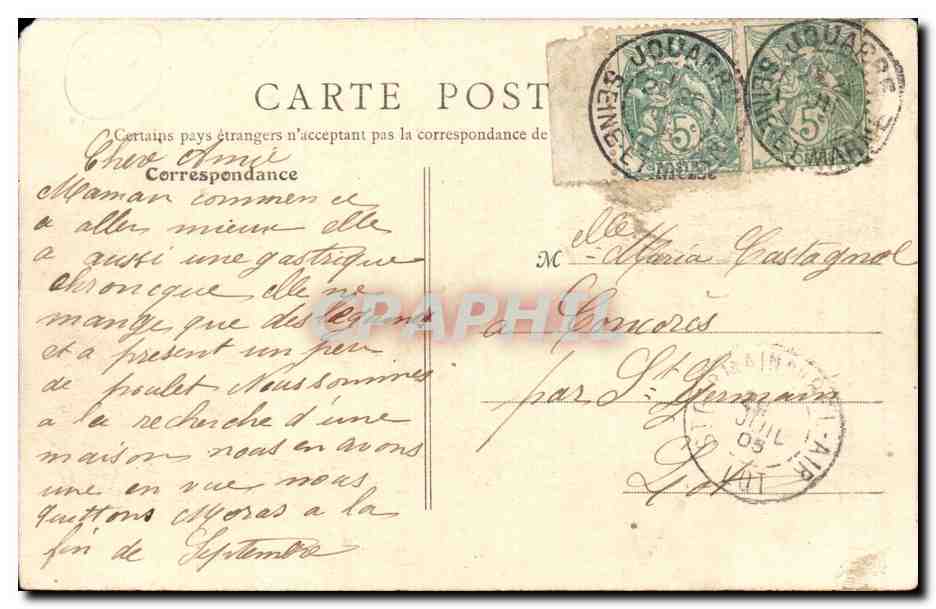 CARTE POST
Certains pays étrangers n'acceptant pas la correspondance de
Correspondance
Chere Amie
Maman commence
a aller mieux elle
a aussi une gastrique
chronique elle ne
mange que des légumes
et a présent un peu
de poulet Nous sommes
a la recherche d'une
maison nous en avons
une en vue nous
quittons Moras a la
fin de Septembre
M elle Maria Castagnol
a Concorès
par St Germain
Lot
JOUARRE
SEINE ET MARNE
5c
JOUARRE
SEINE ET MARNE
5c
ST GERMAIN DU BEL-AIR
JUIL
05
LOT
CPAPHIL